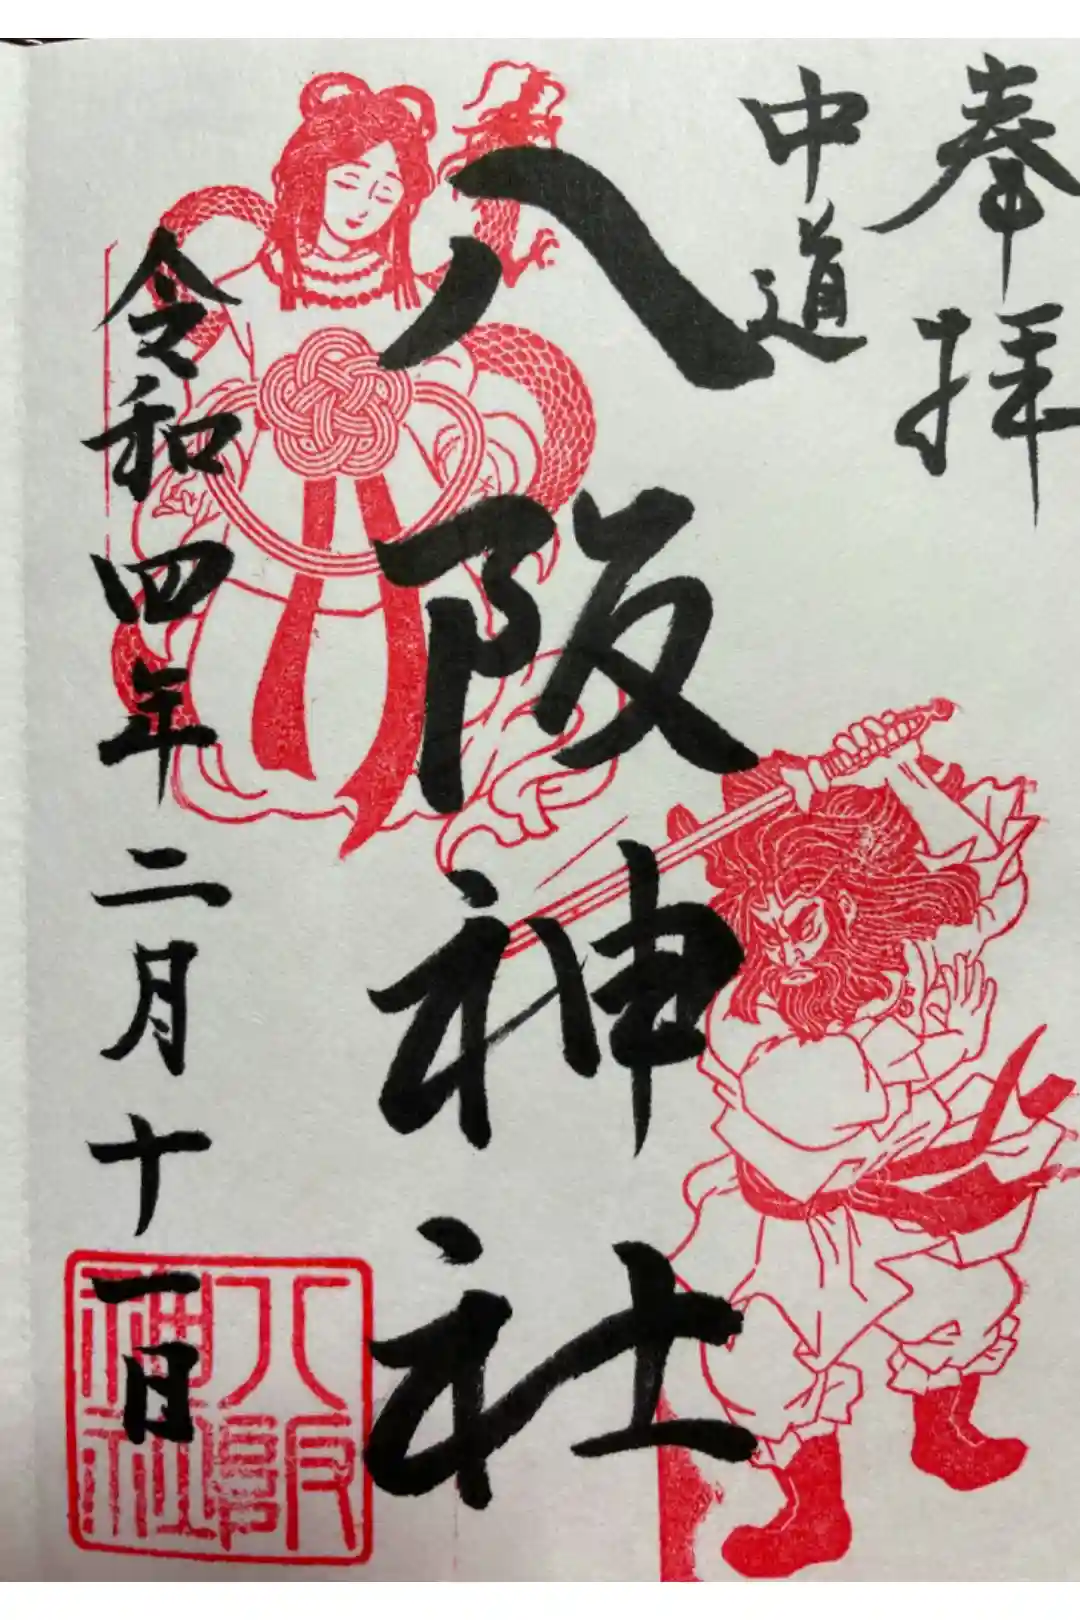 奉拝
中道
八阪神社
令和四年二月十一日
八阪神社